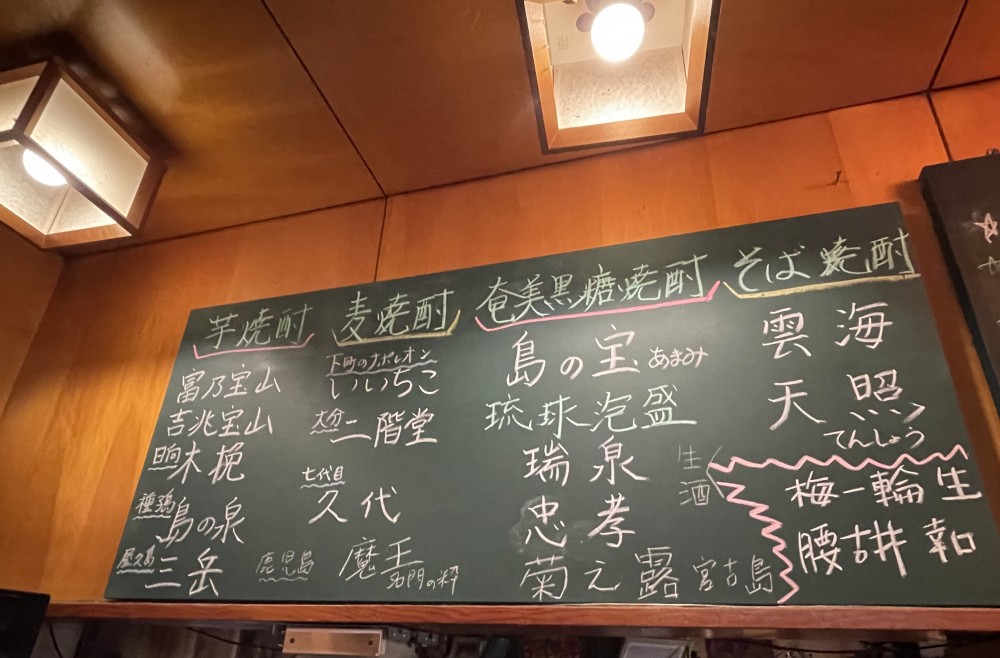 芋焼酎
富乃宝山
吉兆宝山
日向木挽
種子島の泉
屋久島三岳
麦焼酎
下町のナポレオン
いいちこ
大分二階堂
七代目
久代
鹿児島魔王
名門の粋
奄美黒糖焼酎
島の宝あまみ
琉球泡盛
瑞泉
忠孝
菊之露宮古島
そば焼酎
雲海
天照
てんしょう
生酒
梅一輪生
腰古井